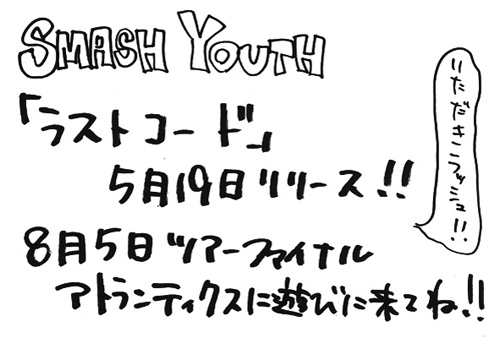 SMASH YOUTH
「ラストコード」
5月19日リリース!!
8月5日ツアーファイナル
アトランティクスに遊びに来てね!!
いただきフラッシュ!!